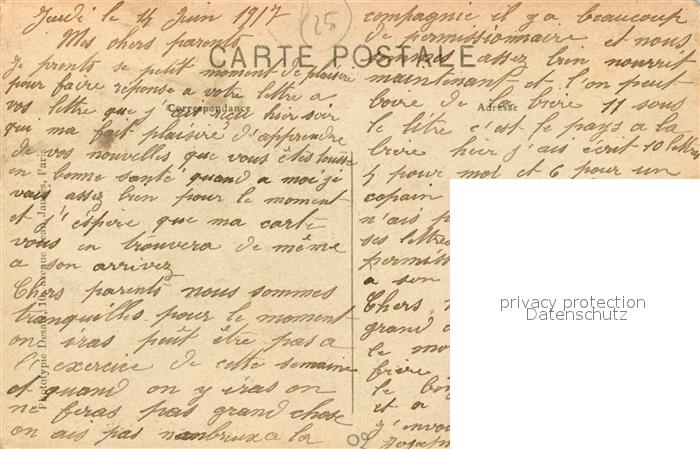 Jeudi le 14 Juin 1917
(25)
Mes chers parents
CARTE POSTALE
Je prents se petit moment de plaisire
pour faire réponse a votre lettre a
Correspondance
vos lettre que j'ais reçu hier soir
qui ma fait plaisire d'apprendre
de vos nouvelles que vous êtes tousse
en bonne santé quand a moi je
vais assez bien pour le moment
et j'éspère que ma carte
vous en trouvera de même
a son arrivez
Chers parents nous sommes
tranquilles pour le moment
on iras peut être pas a
l'exercice de cette semaine
et quand on y iras on
ne feras pas grand chose
on ais pas nombreux a la
compagnie il y a beaucoup
de permissionnaire et nous
sommes assez bien nourrit
maintenant et l'on peut
boire de la bière 11 sous
Adresse
le litre c'est le pays a la
bière hier j'ais écrit 10 lettres
4 pour moi et 6 pour un
copain
n'ais p
ses lettres
permiss
a son
Chers
grand
le mo
frère
le
et a
j'envo
Phototypie Desaix, Avenue Jean Jaurès, Paris
privacy protection
Datenschutz